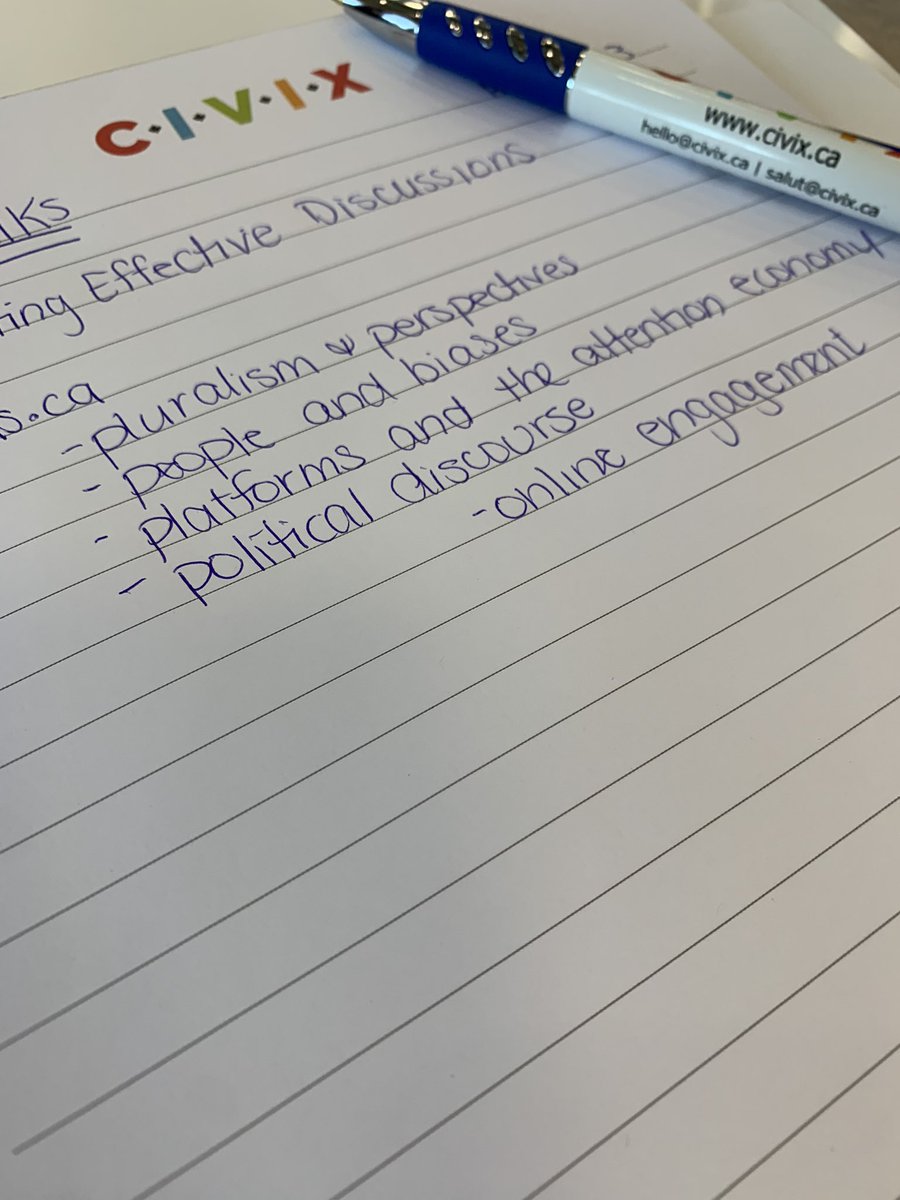 C·I·V·I·X
www.civix.ca
hello@civix.ca | salut@civix.ca
Effective Discussions
- pluralism & perspectives
- people and biases
- platforms and the attention economy
- political discourse
- online engagement